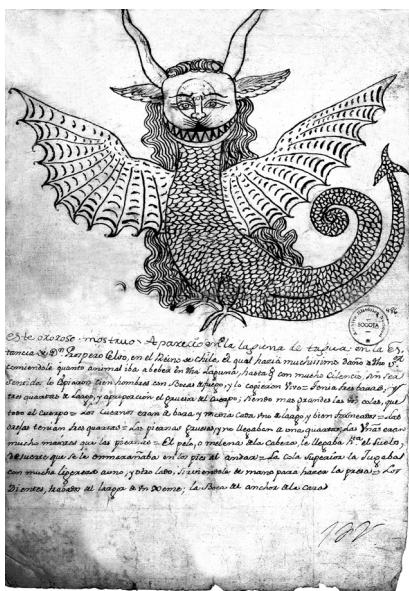 BOGOTA
este oroроso mostruo Aparecio en la laguna de tagua en la Es,
tancia de Dn Prospero Celso, en el Reino de chile, El qual hazia muchisimo daño
comiendole quanto animal iba a beber en dha Laguna, hasta q con mucho cilencio, sin ser
Sentidos lo Espiaron cien hombres con Bocas de fuego, y lo cogieron Vivo = Tenia tres baras, y
tres quartas de Largo, y a proporcion el grueso del Cuerpo; siendo mas grandes las dos colas, que
todo el Cuerpo = Los Cuernos eran de bara y media cada uno de Largo y bien torneados = Las
orejas tenian tres quartas = Las piernas gruesas, y no llegaban a una quarta; Las Uñas eran
mucho mayores que las piernas = El pelo, o melena de la Cabeza, le llegaba hta el Suelo,
de suerte que se le enmarañaba en los pies al andar = La cola Superior la Jugaba
con mucha ligereza a uno, y otro lado, sirviendole de mano para hacer la presa = Los
Dientes, trabados del largo de un xeme, la Boca del anchor de la cara